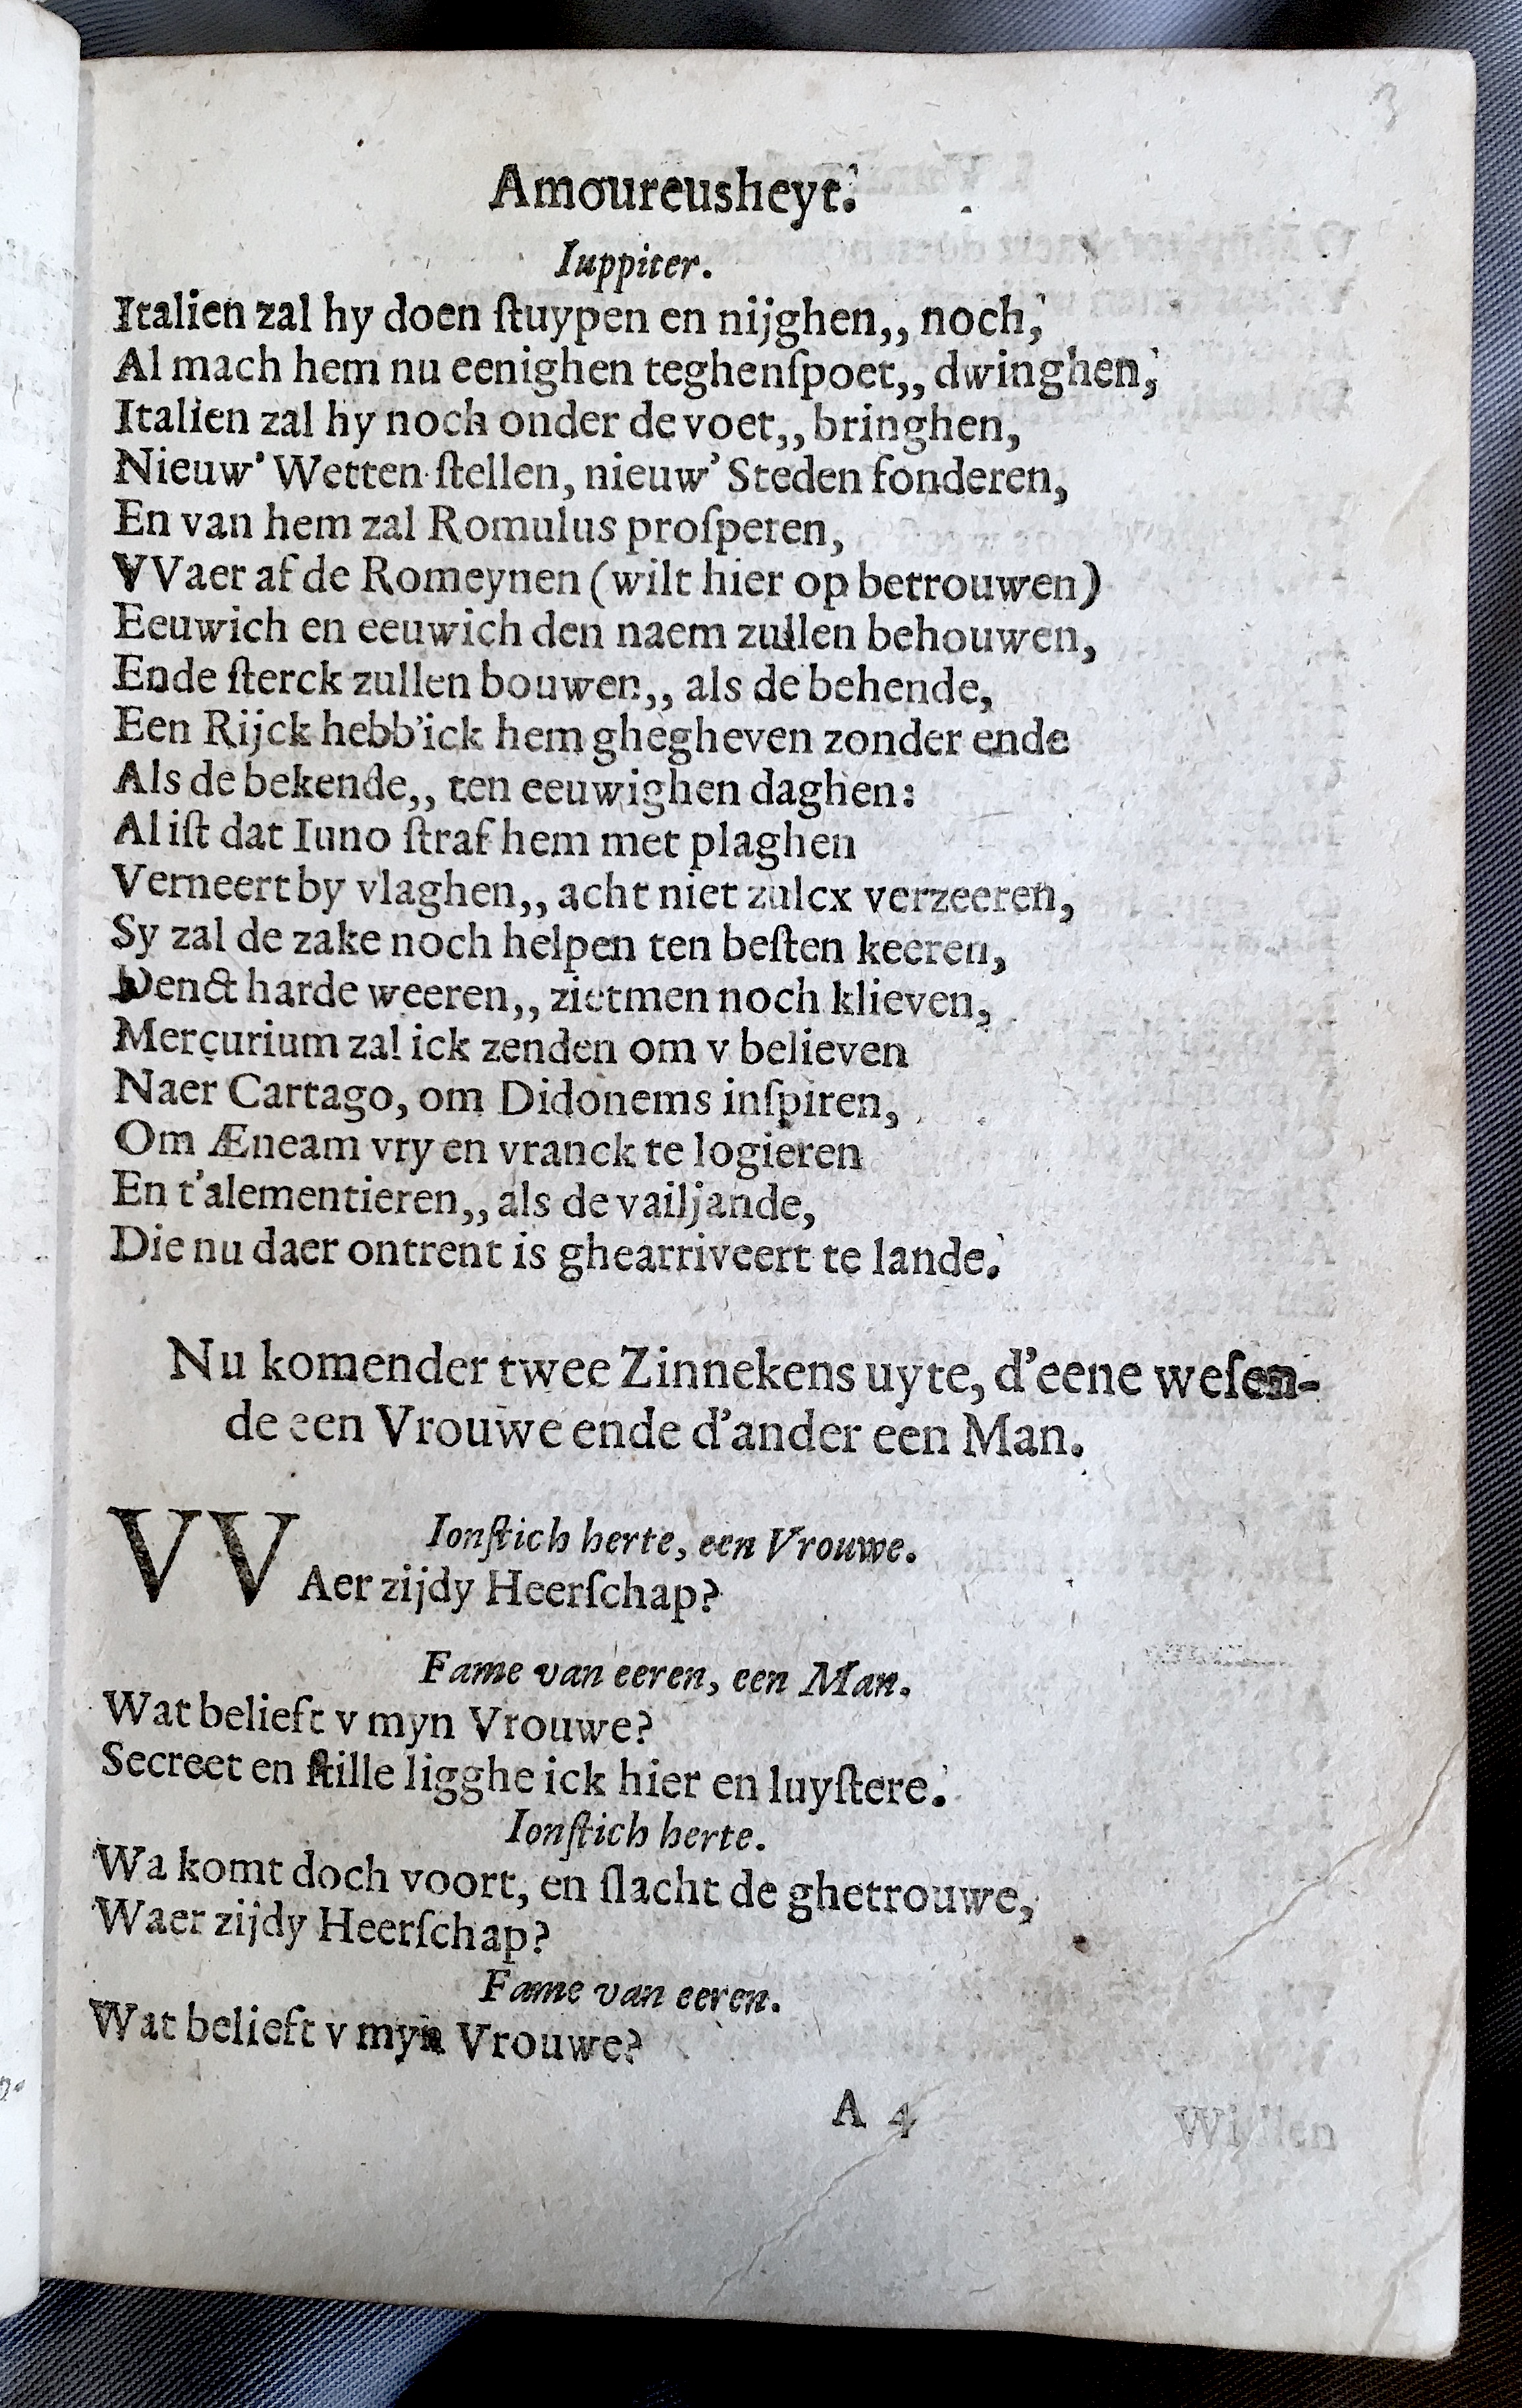 3
Amoureusheyt.
Iuppiter.
Italien zal hy doen ſtuypen en nijghen,, noch,
Al mach hem nu eenighen teghenſpoet,, dwinghen,
Italien zal hy noch onder de voet,, bringhen,
Nieuw' Wetten ſtellen, nieuw' Steden fonderen,
En van hem zal Romulus proſperen,
VVaer af de Romeynen (wilt hier op betrouwen)
Eeuwich en eeuwich den naem zullen behouwen,
Ende ſterck zullen bouwen,, als de behende,
Een Rijck hebb'ick hem ghegheven zonder ende
Als de bekende,, ten eeuwighen daghen:
Al iſt dat Iuno ſtraf hem met plaghen
Verneert by vlaghen,, acht niet zulcx verzeeren,
Sy zal de zake noch helpen ten beſten keeren,
Denct harde weeren,, zietmen noch klieven,
Mercurium zal ick zenden om v believen
Naer Cartago, om Didonems inſpiren,
Om Æneam vry en vranck te logieren
En t'alementieren,, als de vailjande,
Die nu daer ontrent is ghearriveert te lande.
Nu komender twee Zinnekens uyte, d'eene weſen-
de een Vrouwe ende d'ander een Man.
Ionſtich herte, een Vrouwe.
VVAer zijdy Heerſchap?
Fame van eeren, een Man.
Wat belieft v myn Vrouwe?
Secreet en ſtille ligghe ick hier en luyſtere.
Ionſtich herte.
Wa komt doch voort, en ſlacht de ghetrouwe,
Waer zijdy Heerſchap?
Fame van eeren.
Wat belieft v myn Vrouwe?
A 4